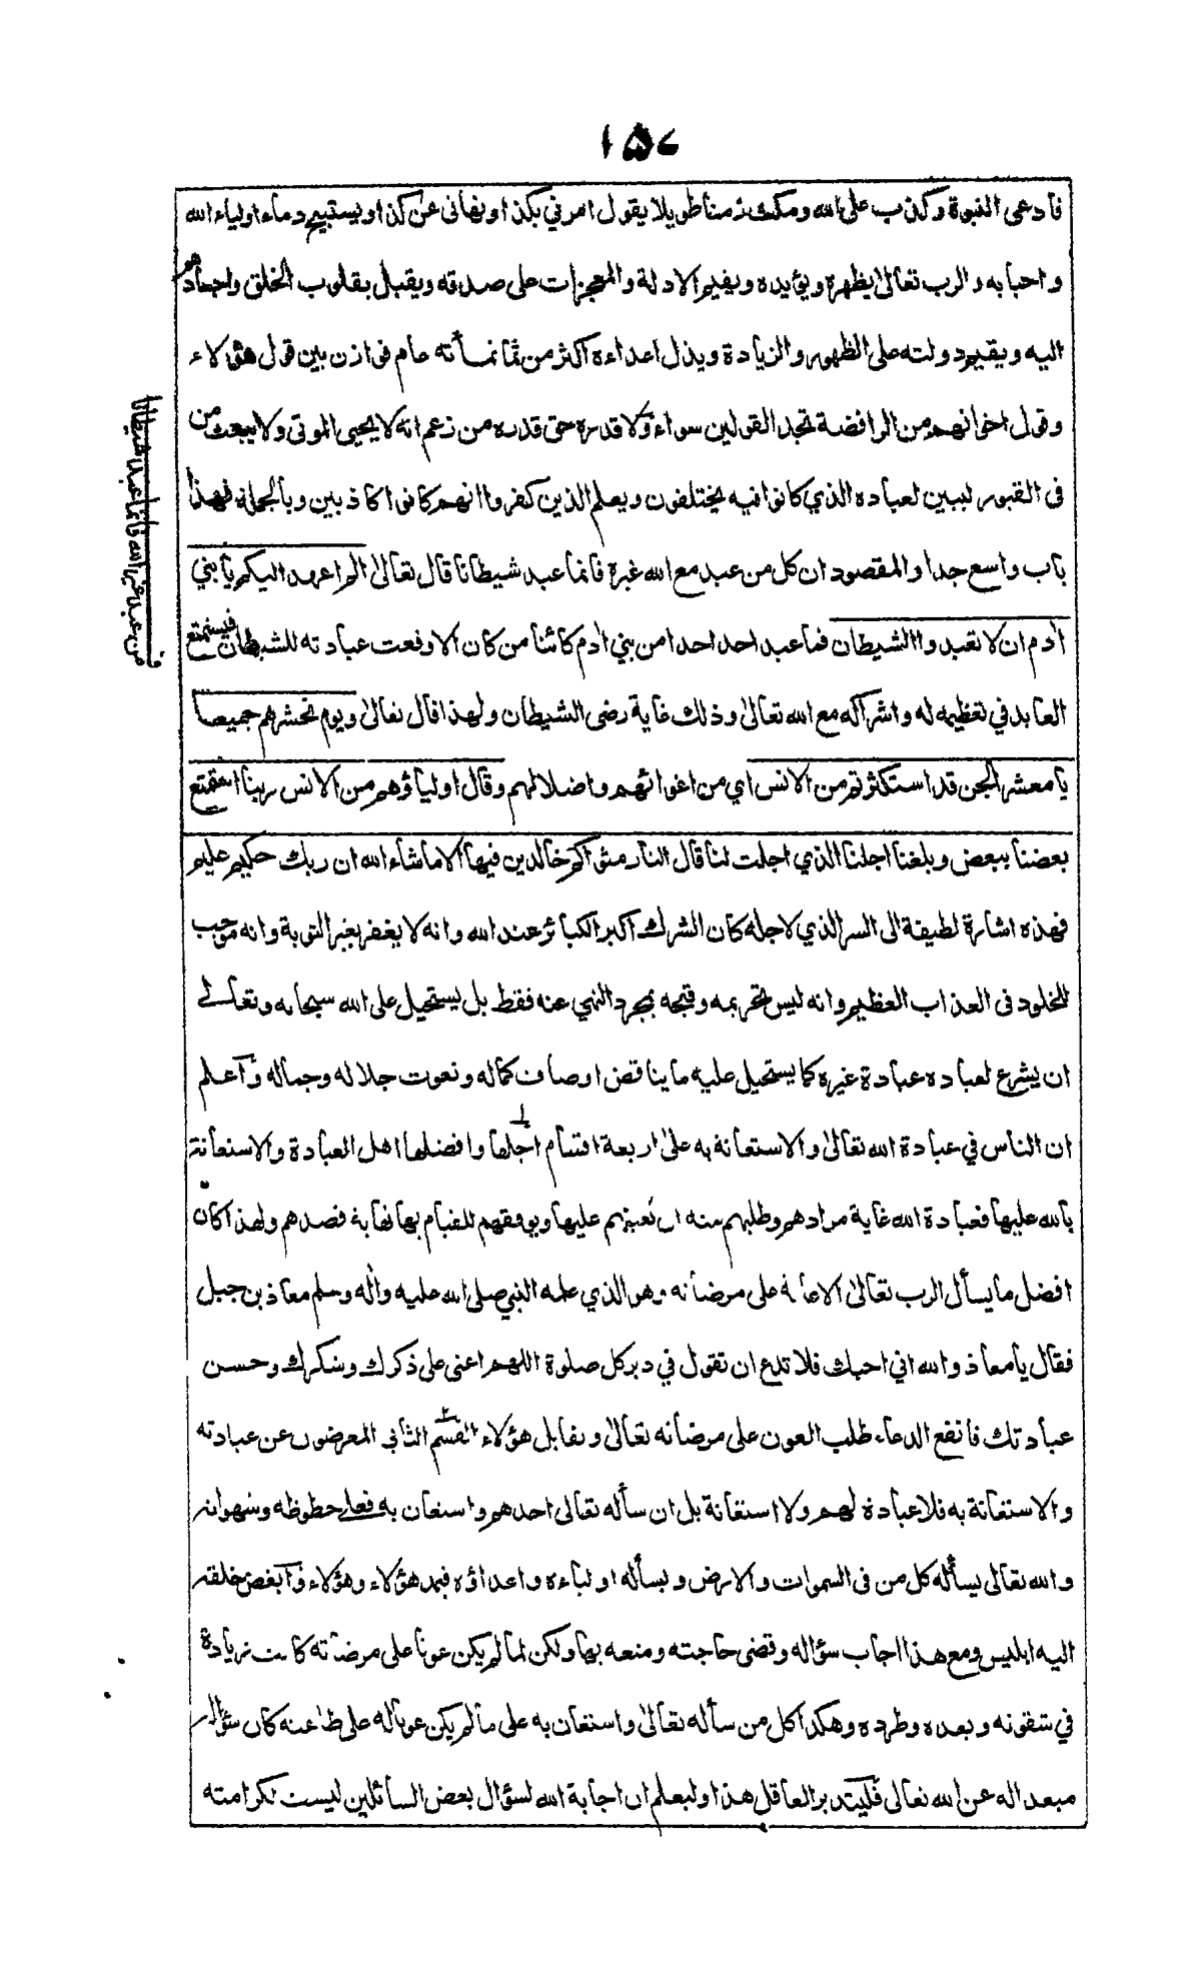 ١٥٧
فادعى النبوة وكذب على الله ومكث زمنا طويلا يقول امرني بكذا ونهانى عن كذا ويستبيح دماء اولياء الله
واحبابه والرب تعالى يظهره ويؤيده ويقيم الادلة والمعجزات على صدقه ويقبل بقلوب الخلق واجسادهم
اليه ويقيم دولته على الظهور والزيادة ويذل اعداءه اكثر من ثمانمأته عام فوازن بين قول هؤلاء
وقول اخوانهم من الرافضة تجد القولين سواء ولا قدره حق قدره من زعم انه لا يحيى الموتى ولا يبعث من
فى القبور ليبين لعباده الذي كانوا فيه يختلفون ويعلم الذين كفروا انهم كانوا كاذبين وبالجملة فهذا
باب واسع جدا والمقصود ان كل من عبد مع الله غيره فانما عبد شيطانا قال تعالى الم اعهد اليكم يا بني
ادم ان لا تعبدوا الشيطان فما عبد احد احدا من بني ادم كائنا من كان الا وقعت عبادته للشيطان فيستمتع
العابد في تعظيمه له واشراكه مع الله تعالى وذلك غاية رضى الشيطان ولهذا قال تعالى ويوم نحشرهم جميعا
يا معشر الجن قد استكثرتم من الانس اي من اغوائهم واضلالهم وقال اولياؤهم من الانس ربنا استمتع
بعضنا ببعض وبلغنا اجلنا الذي اجلت لنا قال النار مثواكم خالدين فيها الا ما شاء الله ان ربك حكيم عليم
فهذه اشارة لطيفة الى السر الذي لاجله كان الشرك اكبر الكبائر عند الله وانه لا يغفر بغير التوبة وانه موجب
للخلود فى العذاب العظيم وانه ليس تحريمه وقبحه بمجرد النهي عنه فقط بل يستحيل على الله سبحانه وتعالى
ان يشرع لعباده عبادة غيره كما يستحيل عليه ما يناقض اوصاف كماله ونعوت جلاله وجماله واعلم
ان الناس في عبادة الله تعالى والاستعانة به على اربعة اقسام اجلها وافضلها اهل العبادة والاستعانة
بالله عليها فعبادة الله غاية مرادهم وطلبهم منه ان يعينهم عليها ويوفقهم للقيام بها نهاية قصدهم ولهذا كان
افضل ما يسأل الرب تعالى الاعانة على مرضاته وهو الذي علمه النبي صلى الله عليه واله وسلم معاذ بن جبل
فقال يا معاذ والله اني احبك فلا تدع ان تقول في دبر كل صلوة اللهم اعنى على ذكرك وشكرك وحسن
عبادتك فانفع الدعاء طلب العون على مرضاته تعالى ويقابل هؤلاء القسم الثاني المعرضون عن عبادته
والاستعانة به فلا عبادة لهم ولا استعانة بل ان سأله تعالى احدهم واستعان به فعلى حظوظه وشهواته
والله تعالى يسأله كل من فى السموات والارض ويسأله اولياءه واعداؤه فيمد هؤلاء وهؤلاء وابغض خلقه
اليه ابليس ومع هذا اجاب سؤاله وقضى حاجته ومتعه بها ولكن لما لم يكن عونا على مرضاته كانت زيادة
في شقوته وبعده وطرده وهكذا كل من سأله تعالى واستعان به على ما لم يكن عونا له على طاعته كان سؤاله
مبعدا له عن الله تعالى فليتدبر العاقل هذا وليعلم ان اجابة الله لسؤال بعض السائلين ليست لكرامته
من عبد غير الله فانما عبد شيطانا